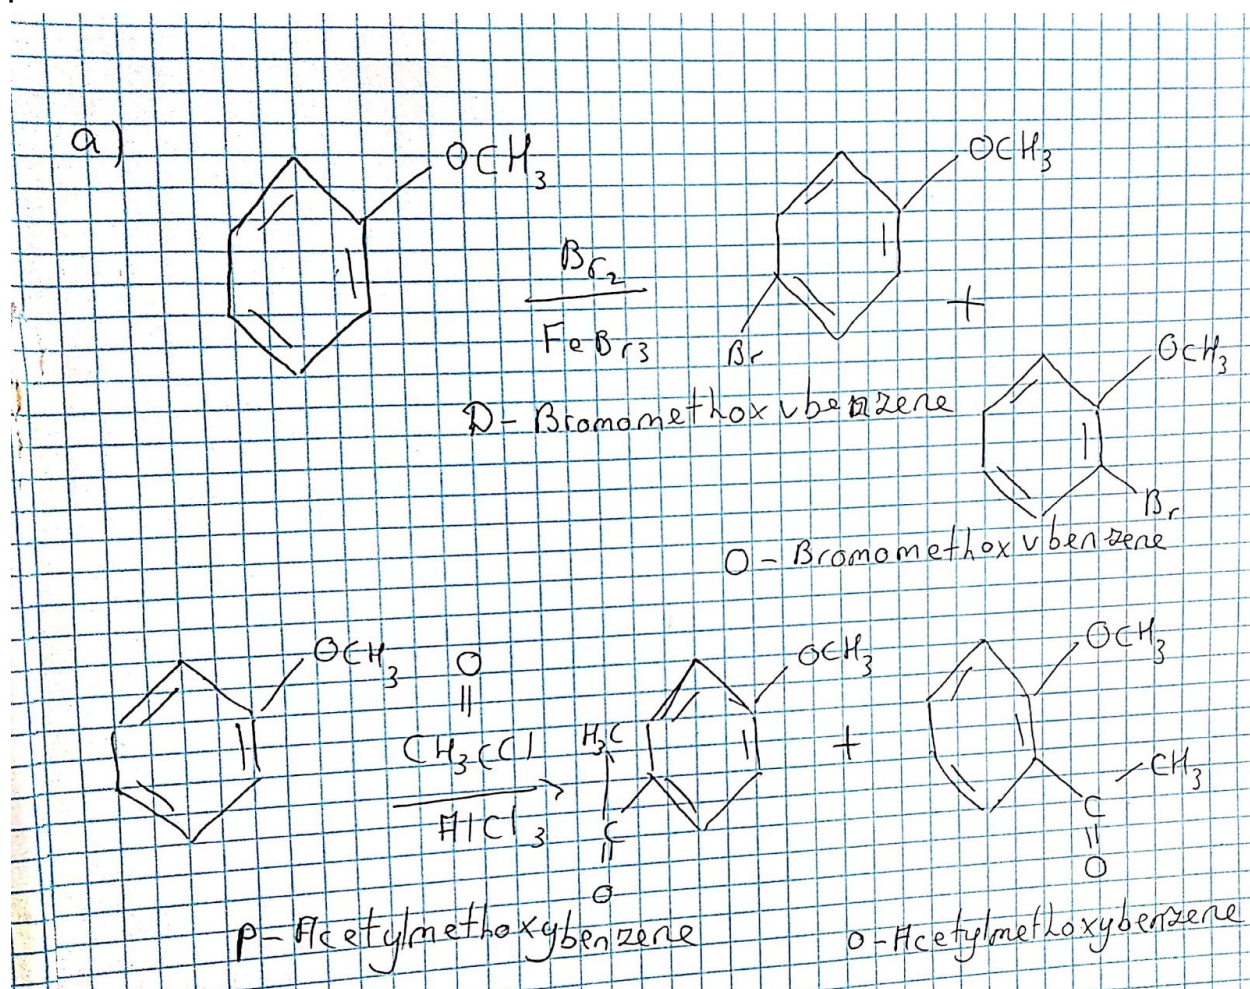 a)
OCH3
Br2
FeBr3
OCH3
Br
+
D- Bromomethoxvbenzene
OCH3
Br
O- Bromomethoxvbenzene
OCH3
O
CH3CCl
AlCl3
OCH3
H3C
C
O
+
OCH3
CH3
C
O
p- Acetylmethoxybenzene
o- Acetylmethoxybenzene